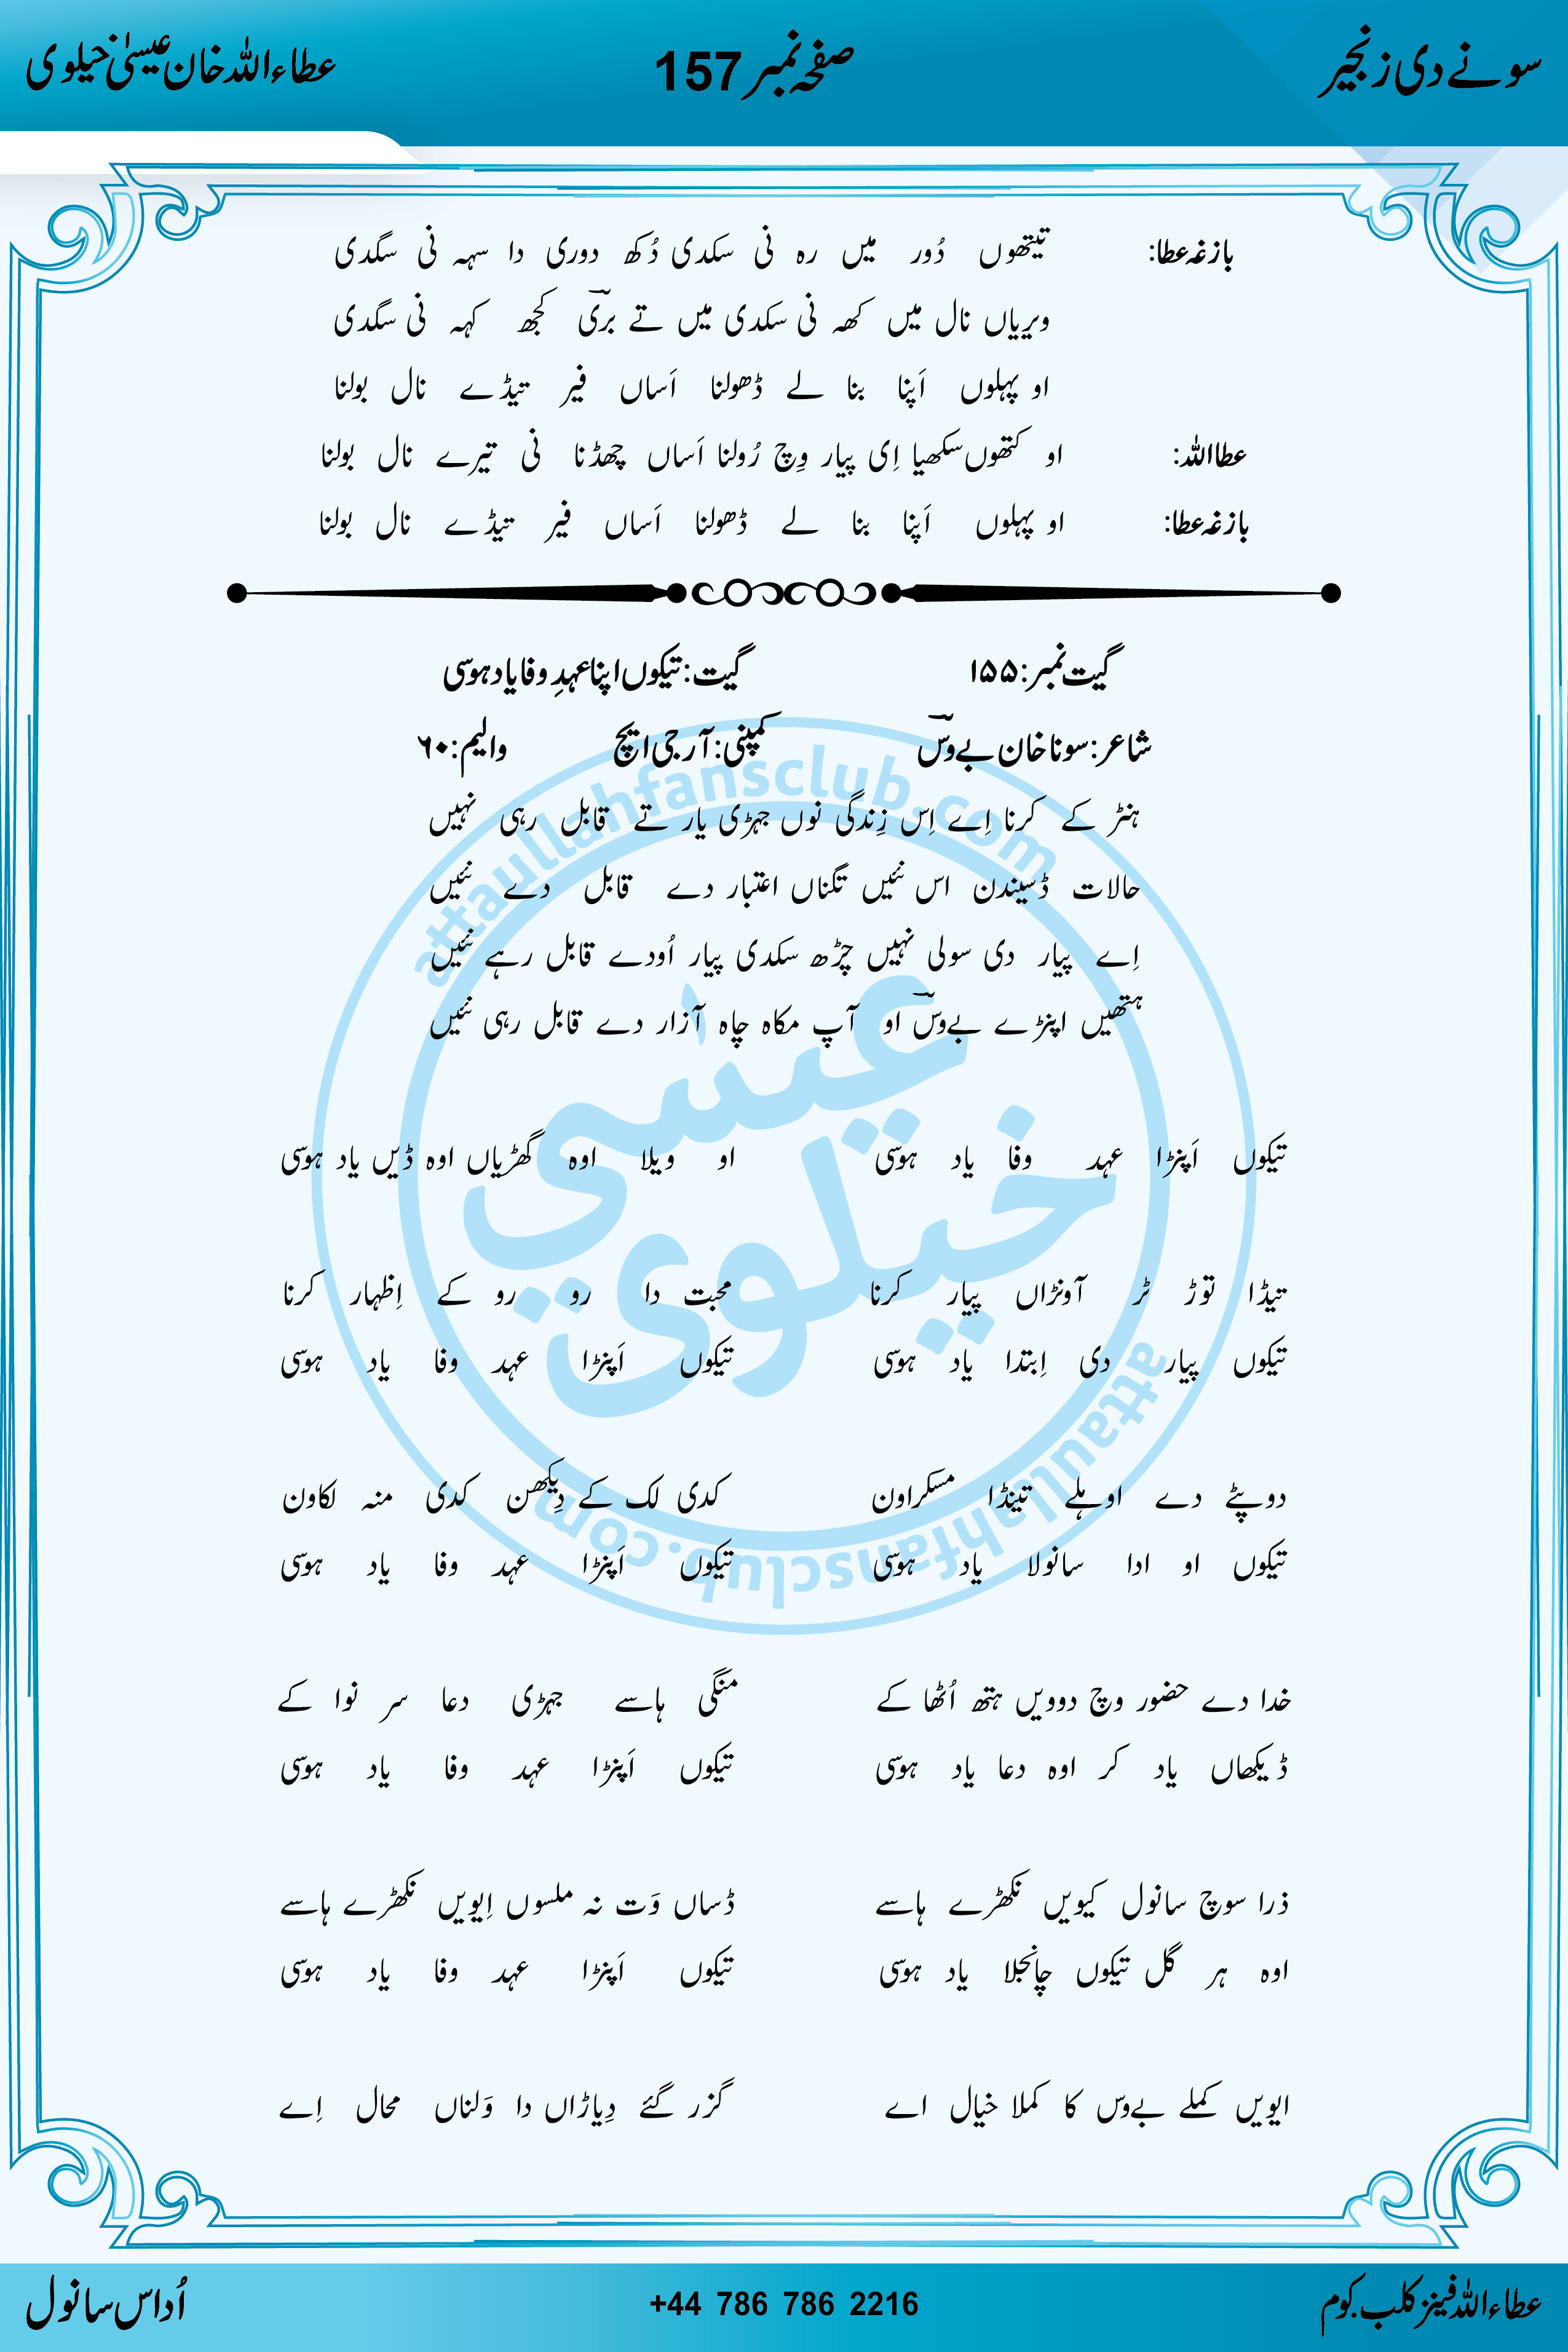 سونے دی زنجیر صفحہ نمبر 157 عطاءاللہ خان عیسیٰ خیلوی
بازغہ عطا: تیتھوں دُور میں رہ نی سکدی دُکھ دوری دا سہہ نی سگدی
ویریاں نال میں کھہ نی سکدی میں تے بریؔ کجھ کہہ نی سگدی
او پہلوں اَپنا بنا لے ڈھولنا اَساں فیر تیڈے نال بولنا
عطااللہ: او کتھوں سکھیا اِی پیار وِچ رُولنا اَساں چھڈنا نی تیرے نال بولنا
بازغہ عطا: او پہلوں اَپنا بنا لے ڈھولنا اَساں فیر تیڈے نال بولنا
گیت نمبر: ۱۵۵ گیت: تیکوں اپنا عہدِ وفا یاد ہوسی
شاعر: سونا خان بے وسؔ کمپنی: آر جی ایچ والیم: ۶۰
ہنڑ کے کرنا اِے اِس زِندگی نوں جہڑی یار تے قابل رہی نہیں
حالات ڈسیندن اس نئیں تگناں اعتبار دے قابل دے نئیں
اِے پیار دی سولی نہیں چڑھ سکدی پیار اُودے قابل رہے نئیں
ہتھیں اپنڑے بے وسؔ او آپ مکاہ چاہ آزار دے قابل رہی نئیں
تیکوں اَپنڑا عہد وفا یاد ہوسی او ویلا اوہ گھڑیاں اوہ ڈیں یاد ہوسی
تیڈا توڑ ٹر آونڑاں پیار کرنا محبت دا رو رو کے اِظہار کرنا
تیکوں پیار دی اِبتدا یاد ہوسی تیکوں اَپنڑا عہد وفا یاد ہوسی
دوپٹے دے اوہلے تینڈا مسکراون کدی لک کے دِیکھن کدی منہ لکاون
تیکوں او ادا سانولا یاد ہوسی تیکوں اَپنڑا عہد وفا یاد ہوسی
خدا دے حضور وچ دوویں ہتھ اُٹھا کے منگی ہاسے جہڑی دعا سر نوا کے
ڈیکھاں یاد کر اوہ دعا یاد ہوسی تیکوں اَپنڑا عہد وفا یاد ہوسی
ذرا سوچ سانول کیویں نکھڑے ہاسے ڈساں وَت نہ ملسوں اِیویں نکھڑے ہاسے
اوہ ہر گل تیکوں چانجلا یاد ہوسی تیکوں اَپنڑا عہد وفا یاد ہوسی
ایویں کملے بے وس کا کملا خیال اے گزر گئے دِیاڑاں دا وَلناں محال اِے
عطاءاللہ فینز کلب.کوم +44 786 786 2216 اُداس سانول
attaullahfansclub.com
عیسٰی
خیلوی
attaullahfansclub.com